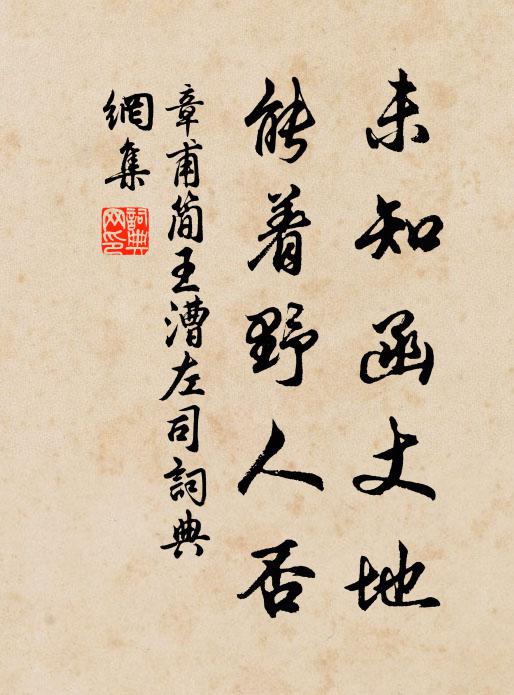 未知函丈地
能着野人否
章甫简王漕左司詞典
網集
詞典
网印